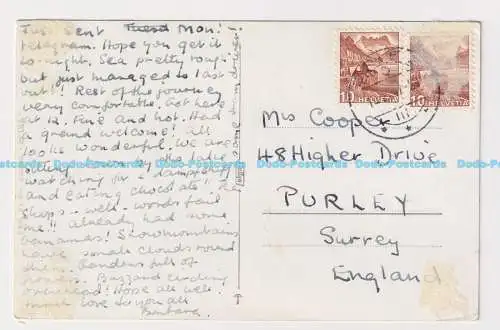 Just sent Mon:
telegram. Hope you get it
to-night. Sea pretty rough
but just managed to last
out! Rest of the journey
very comfortable. Got here
at 12. Fine and hot. Had
a grand welcome! All
looks wonderful. We are
sitting by the lake
watching the
and eating chocolate!! The
shops - well - words fail
me!! Already had some
bananas! Snow mountains
have small clouds round
them. Gardens full of
Buzzard circling
overhead! Hope all well.
much love to you all
Barbara
10 HELVETIA
10 HELVETIA
Mrs Cooper
48 Higher Drive
PURLEY
Surrey
England
Dodo-Postcards.com